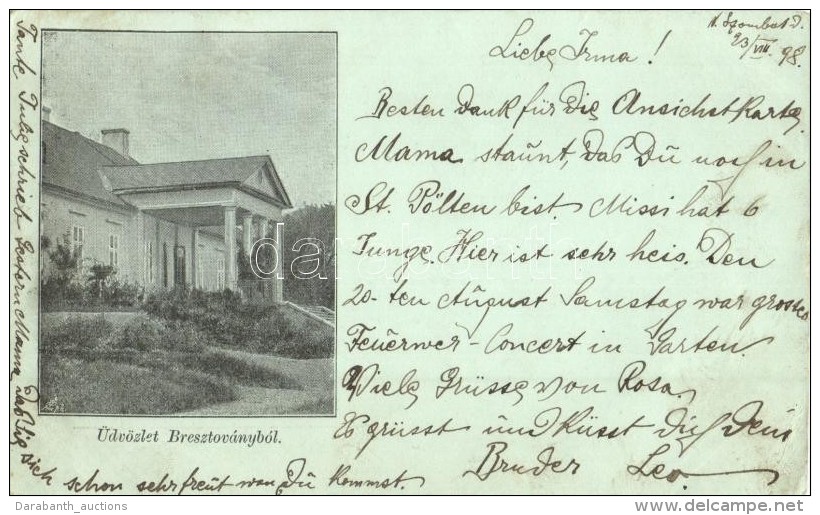 N. Szombat d.
23/VIII 98.
Liebe Irma!
Besten Dank für die Ansichtskarte,
Mama staunt, das Du noch in
St. Pölten bist. Missi hat 6
Junge. Hier ist sehr heis. Den
20-ten August Samstag war grosses
Feuerwer-Concert in Garten.
Viele Grüsse von Rosa.
Es grüsst und Küsst dich Dein
Bruder Leo.
Tante Julie schrieb Gestern Mama das Sie sich
schon sehr freut wan Du kommst.
Üdvözlet Bresztoványból.
darabanth
Darabanth_auctions